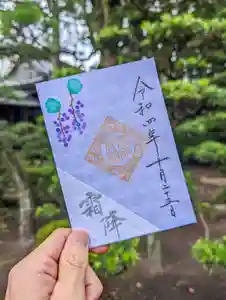 令和四年十月二十三日
霜降